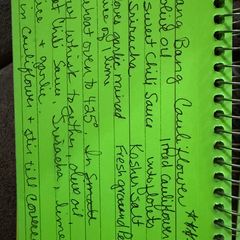 ang Bang Cauliflower
olive oil
sweet chili sauce 1 head cauliflower
Sriracha
Kosher Salt
oves garlic minced Fresh ground
ice of 1 lime
heat oven to 425° In small
whisk together, olive oil
et Chili Sauce, Sriracha, lime
ice & garlic.
in cauliflower & stir till covere